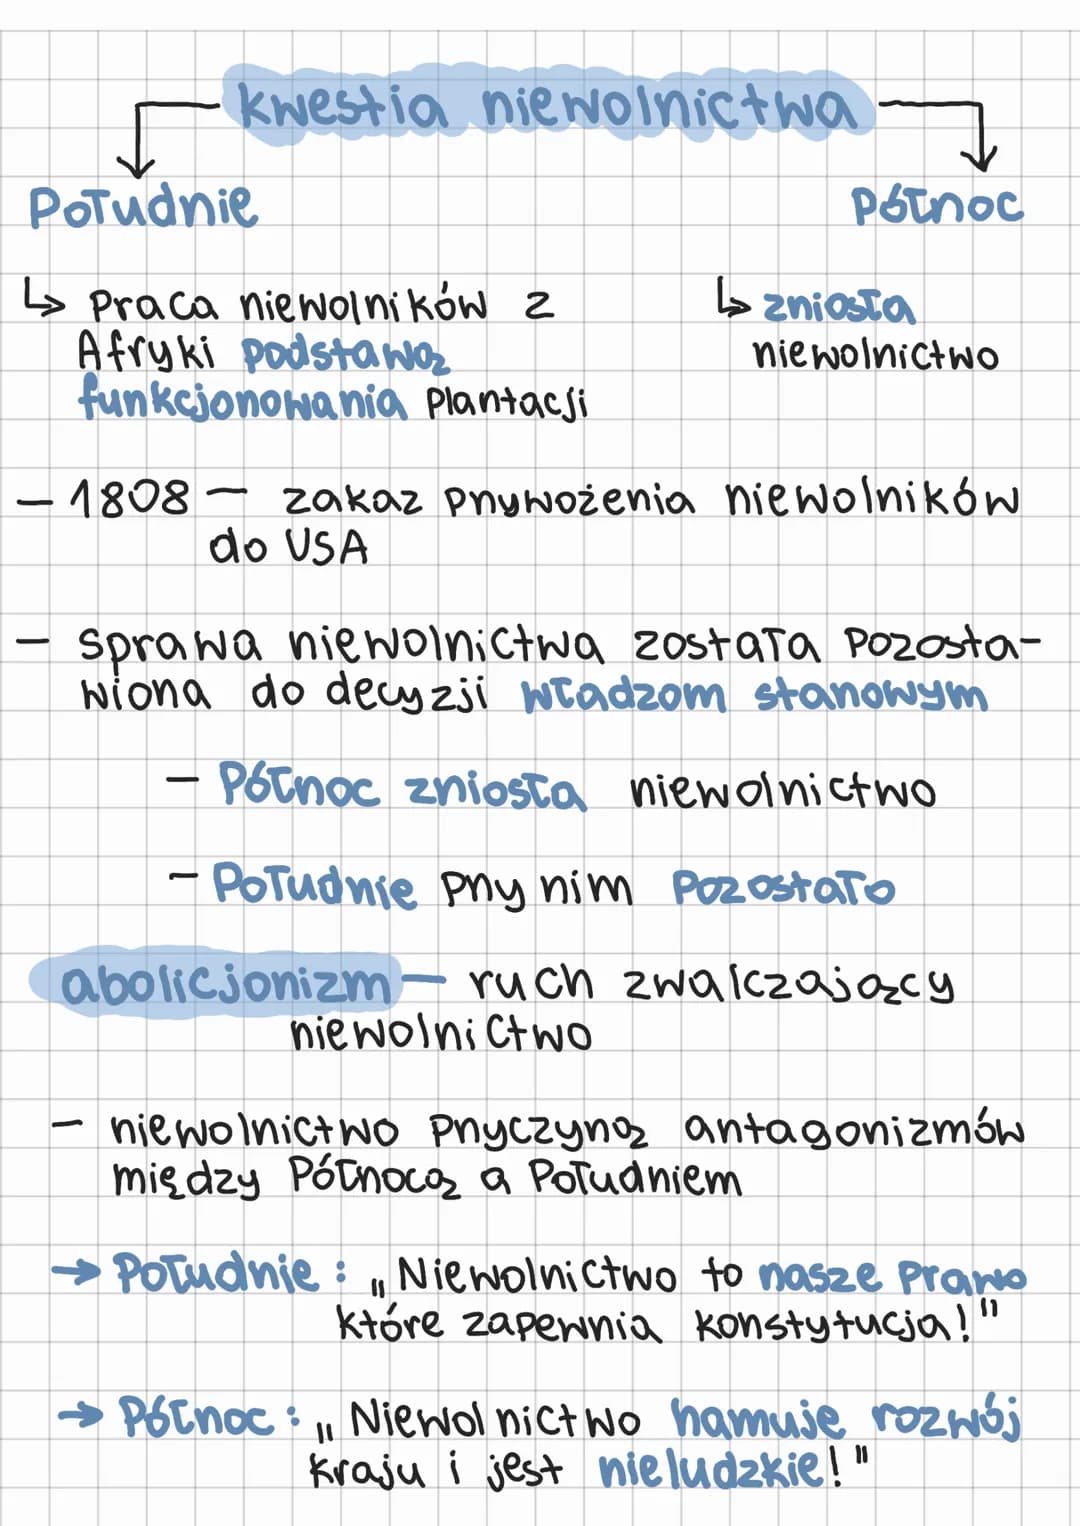 kwestia niewolnictwa
Południe
Północ
↳ Praca niewolników z
Afryki podstawą
funkcjonowania plantacji
↳ zniosła
niewolnictwo
– 1808 – zakaz przywożenia niewolników
do USA
– sprawa niewolnictwa została pozosta-
wiona do decyzji władzom stanowym
– Północ zniosła niewolnictwo
– Południe przy nim pozostało
abolicjonizm – ruch zwalczający
niewolnictwo
– niewolnictwo przyczyną antagonizmów
między Północą a Południem
→ Południe: „Niewolnictwo to nasze prawo
które zapewnia konstytucja!"
→ Północ: „Niewolnictwo hamuje rozwój
kraju i jest nieludzkie!"